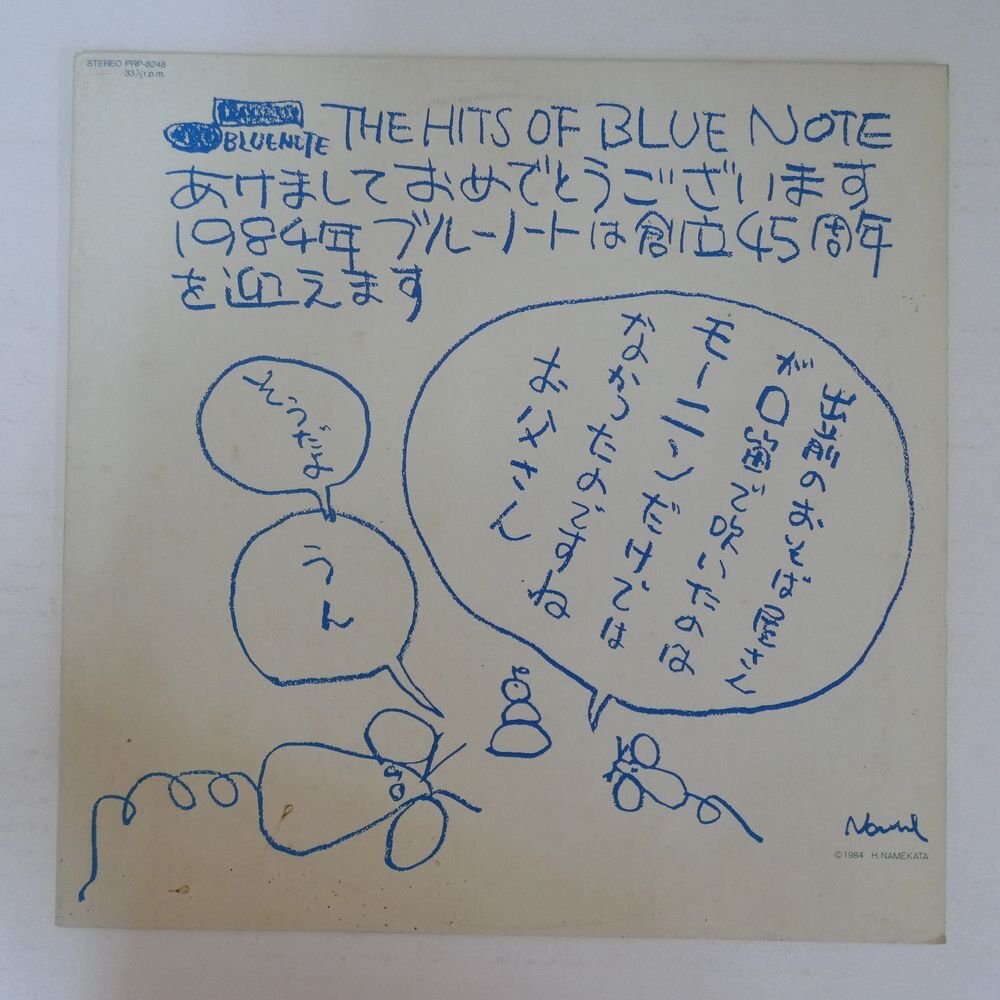 STEREO PRP-8248
33⅓r.p.m.
BLUENOTE
THE HITS OF BLUE NOTE
あけましておめでとうございます
1984年 ブルーノートは創立45周年
を迎えます
出前のおそば屋さん
が口笛で吹いたのは
モーニンだけでは
なかったのですね
お父さん
そうだよ
うん
©1984 H. NAMEKATA